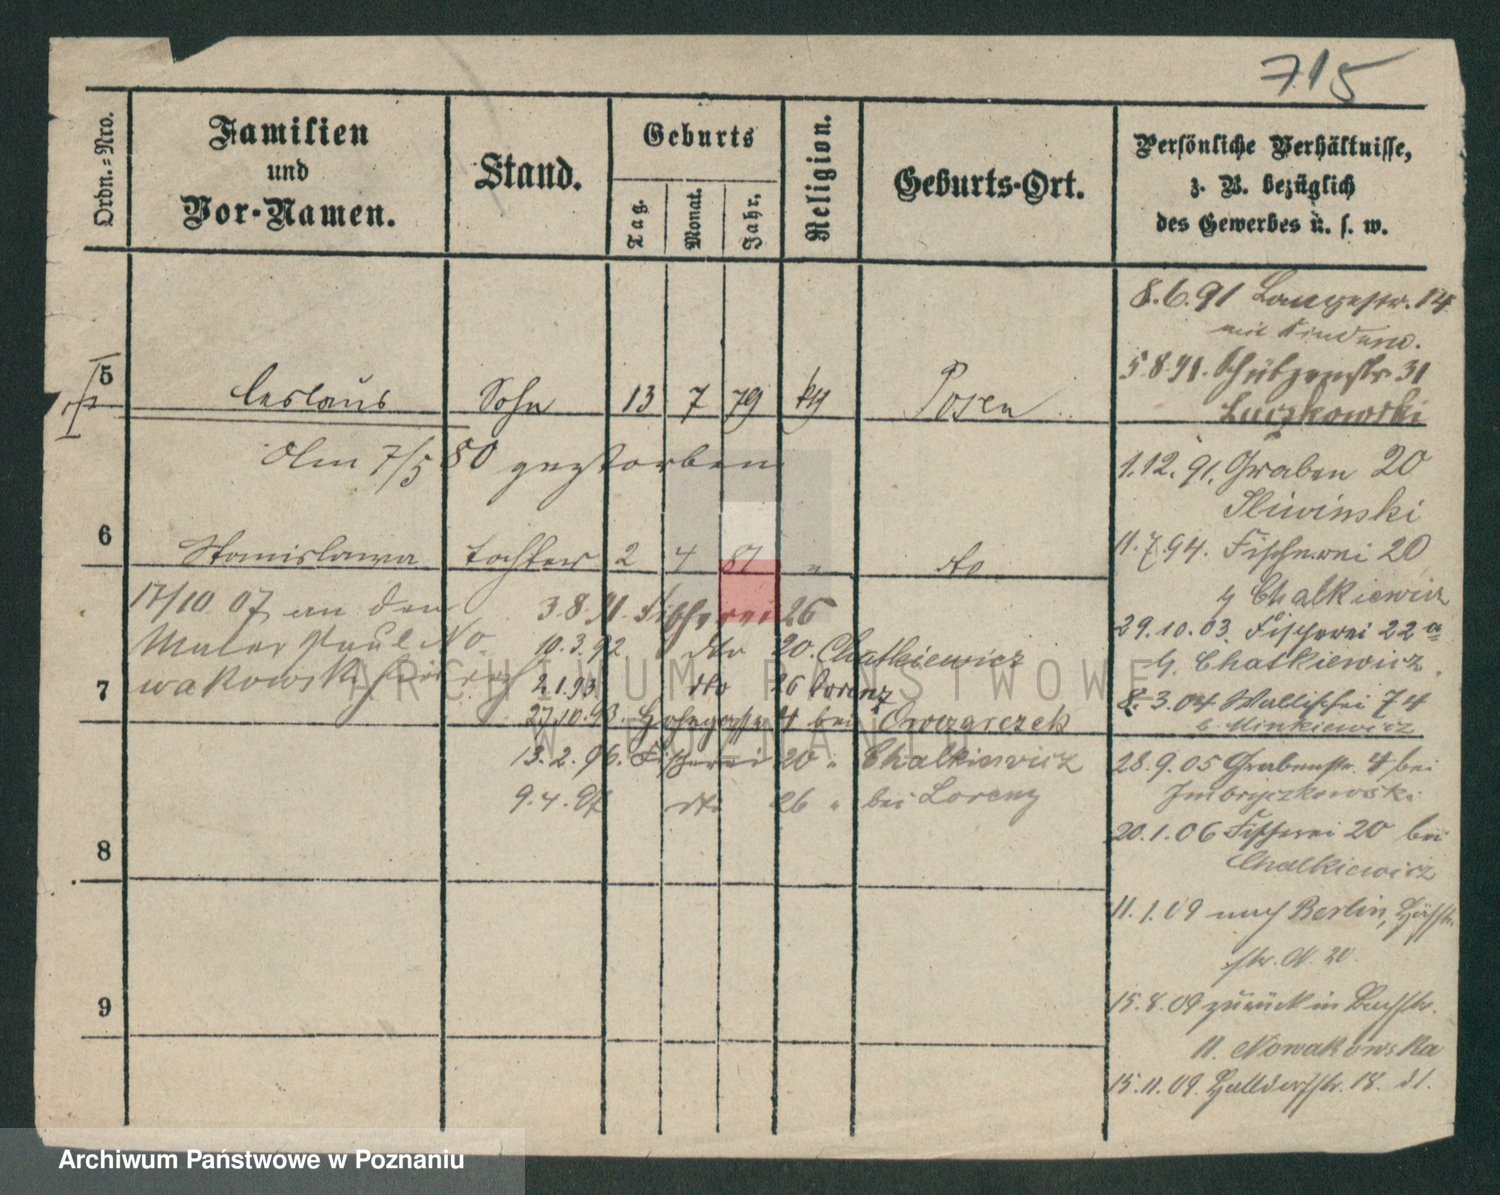 715
Ordn.=Nro.
Familien
und
Vor-Namen.
Stand.
Geburts
Tag.
Monat.
Jahr.
Religion.
Geburts-Ort.
Persönliche Verhältnisse,
z. B. bezüglich
des Gewerbes u. s. w.
8.6.91 Langestr. 14
mit Kindern.
5.8.91. Schützenstr 31
Luczkowski
5 Ceslaus Sohn 13 7 79 kth Posen
Am 7/5 80 gestorben
1.12.91. Graben 20
Sliwinski
6 Stanislawa Tochter 2 4 81 " do
11.7.94. Fischerei 20
Chalkiewicz
17/10. 07 an den
Maler Paul No-
wakowski
29.10.03. Fischerei 22 a
Chalkiewicz.
8.3.04 Wallischei 74
b. Minkiewicz
7
3.8.91. Fischerei 26
10.3.92 dto 20. Chalkiewicz
2.1.93 dto 26 Lorenz
27.10.93. 4 bei Owczarczak
13.2.96. Fischerei 20 " Chalkiewicz
9.4.97 dto 26 " bei Lorenz
28.9.05 Grabenstr. 4 bei
8
20.1.06 Fischerei 20 bei
Chalkiewicz
11.1.09 nach Berlin,
str. N. 20
9
15.8.09 zurück in Bachstr.
11. Nowakowska
15.11.09. 18.
ARCHIWUM PAŃSTWOWE
W POZNANIU
Archiwum Państwowe w Poznaniu